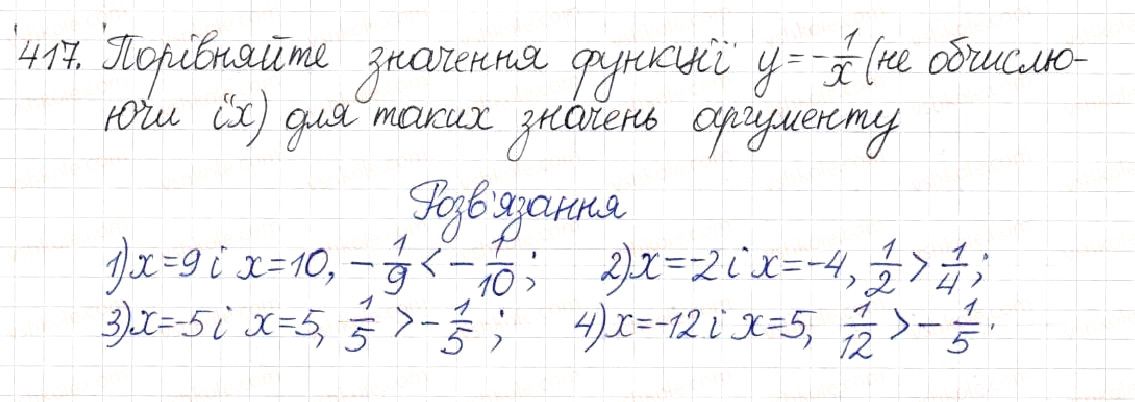 417. Порівняйте значення функції y=-1/x (не обчислю-
ючи їх) для таких значень аргументу
Розв'язання
1) x=9 і x=10, -1/9 < -1/10; 2) x=-2 і x=-4, 1/2 > 1/4;
3) x=-5 і x=5, 1/5 > -1/5; 4) x=-12 і x=5, 1/12 > -1/5.